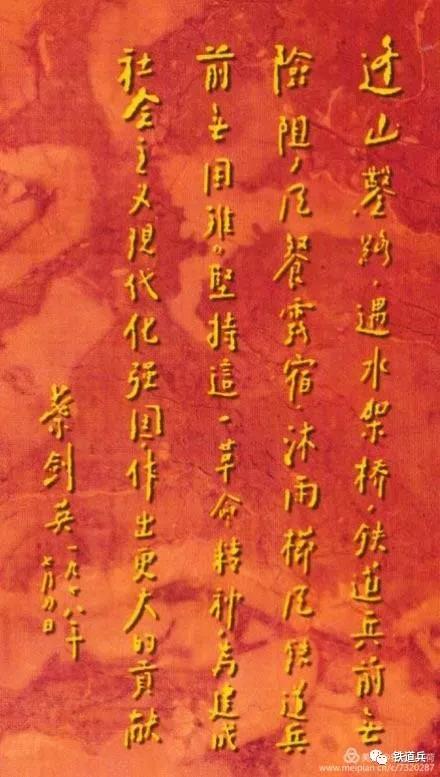 逢山鑿路，遇水架桥，铁道兵前无
險阻，风餐露宿，沐雨栉风铁道兵
前无困难。堅持這一革命精神，为建成
社会主义現代化强国，作出更大的貢献
葉剑英一九七八年
七月日
www.meipian.cn/c/7320287
铁道兵